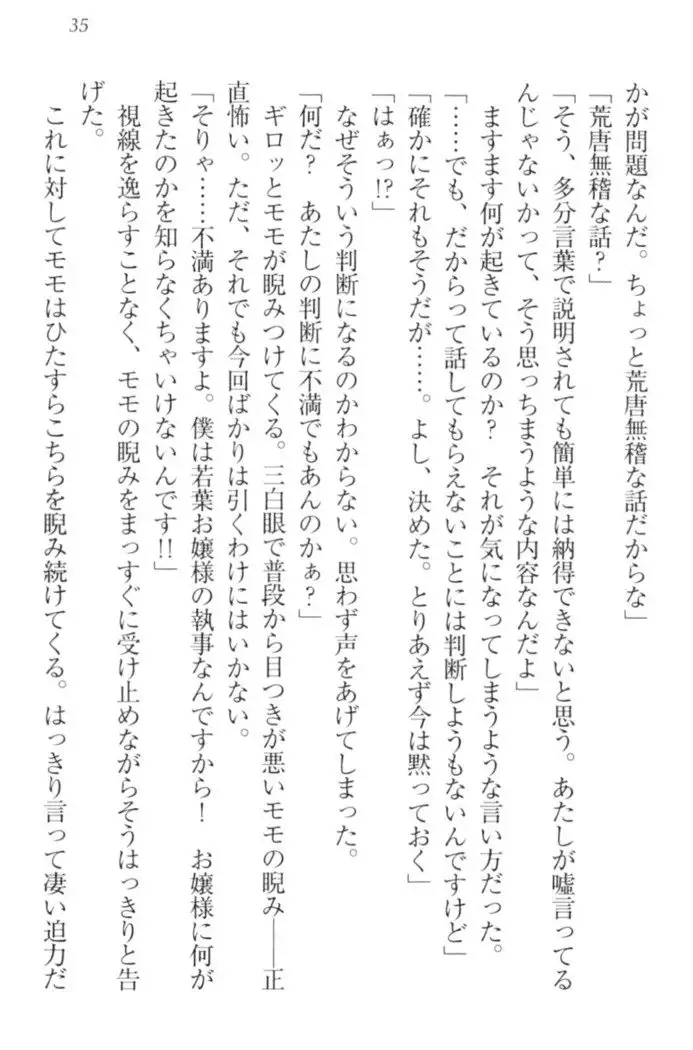 35
かが問題なんだ。ちょっと荒唐無稽な話だからな」
「荒唐無稽な話？」
「そう、多分言葉で説明されても簡単には納得できないと思う。あたしが嘘言ってる
んじゃないかって、そう思っちまうような内容なんだよ」
ますます何が起きているのか？　それが気になってしまうような言い方だった。
「……でも、だからって話してもらえないことには判断しようもないんですけど」
「確かにそれもそうだが……。よし、決めた。とりあえず今は黙っておく」
「はぁっ!?」
なぜそういう判断になるのかわからない。思わず声をあげてしまった。
「何だ？　あたしの判断に不満でもあんのかぁ？」
ギロッとモモが睨みつけてくる。三白眼で普段から目つきが悪いモモの睨み――正
直怖い。ただ、それでも今回ばかりは引くわけにはいかない。
「そりゃ……不満ありますよ。僕は若葉お嬢様の執事なんですから！　お嬢様に何が
起きたのかを知らなくちゃいけないんです!!」
視線を逸らすことなく、モモの睨みをまっすぐに受け止めながらそうはっきりと告
げた。
これに対してモモはひたすらこちらを睨み続けてくる。はっきり言って凄い迫力だ